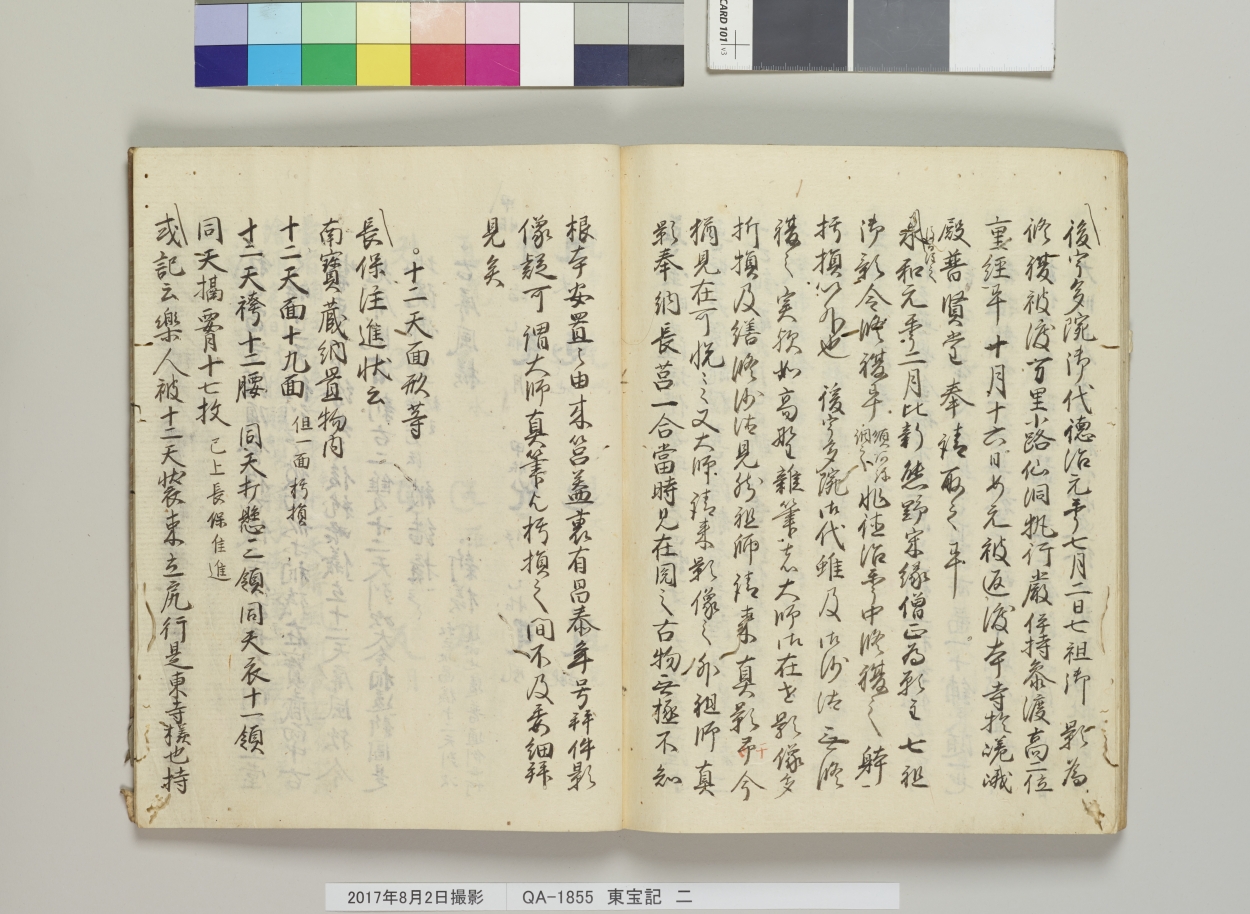 後宇多院御代徳治元年七月二日七祖御影為
修補被渡万里小路仙洞執行厳伊持参渡高二位
重経卒十月十六日如元被返渡本寺於嵯峨
殿普賢堂奉請取之卒
和元年二月比新熊野宗縁僧正為願主七祖
御影令修補卒
徳治年中修補之
朽損以外也 後宇多院御代雖及御沙汰無修
補之実歟如高野雑筆者大師御在世影像多
折損及繕修沙汰見然祖師請来真影于今
猶見在可悦々々又大師請来影像之外祖師真
影奉納長莒一合当時見在図之右物無極不知
根本安置之由来筥蓋裏有昌泰年号拝件影
像疑可謂大師真筆也朽損之間不及委細拝
見矣
。十二天面形等
長保注進状云
南寶蔵納置物内
十二天面十九面 但一面朽損
十二天袴十二腰 同天打懸二領同天衣十一領
同天 十七枚 已上長保注進
或記云樂人被十二天装束立 行是東寺様也持
CARD 101
2017年8月2日撮影 QA-1855 東宝記 二